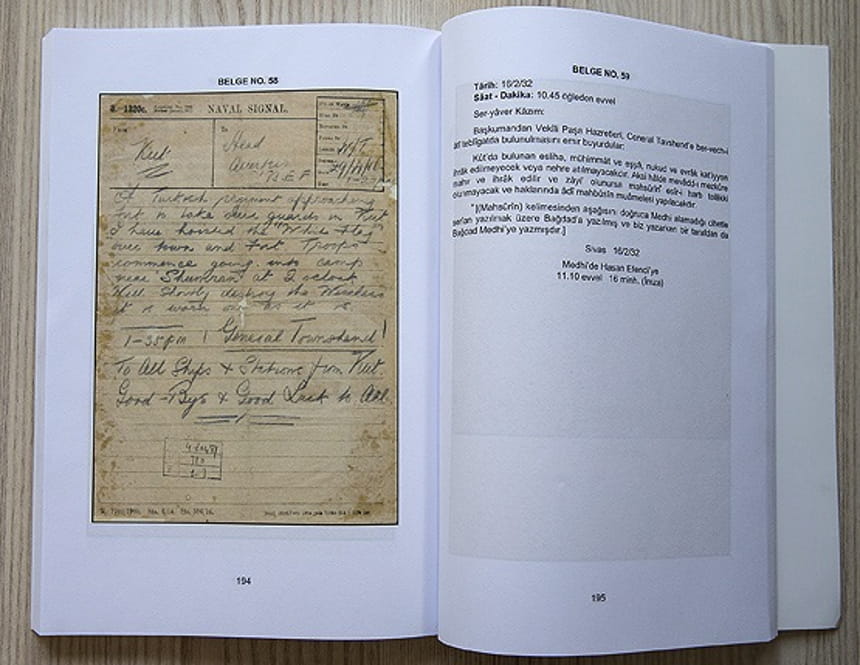 BELGE NO. 58
NAVAL SIGNAL.
From
To
Kut
Head
B.E.F
A Turkish regiment approaching
Fort to take over guards in Kut
I have hoisted the "White Flag"
over town and Fort Troops
commence going into camp
near Shumran at 2 o'clock
Kut Shortly destroy the Wireless
1-35 pm General Townshend
To All Ships & Stations from Kut.
Good-Bye & Good Luck to All
194
BELGE NO. 59
Târih: 16/2/32
Sâat - Dakika: 10.45 öğleden evvel
Ser-yâver Kâzım:
Başkumandan Vekîli Paşa Hazretleri, Ceneral Tavshend'e ber-vech-i
âtî tebligâtda bulunulmasını emir buyurdular:
Kût'da bulunan esliha, mühimmât ve eşyâ, nukud ve evrâk kat'iyyen
ihrâk edilmeyecek veya nehre atılmayacakdır. Aksi hâlde mevâdd-ı mezkûre
mahv ve ihrâk edilir ve zâyi' olunursa mahsûrîn esir-i harb telâkki
olunmayacak ve haklarında âdî mahbûsîn muâmelesi yapılacakdır.
"[(Mahsûrîn) kelimesinden aşağısını doğruca Medhi alamadığı cihetle
şerlan yazılmak üzere Bağdad'a yazılmış ve biz yazarken bir taraftan da
Bağdad Medhi'ye yazmışdır.]
Sivas 16/2/32
Medhi'de Hasan Efendi'ye
11.10 evvel 16 minh. (İmza)
195